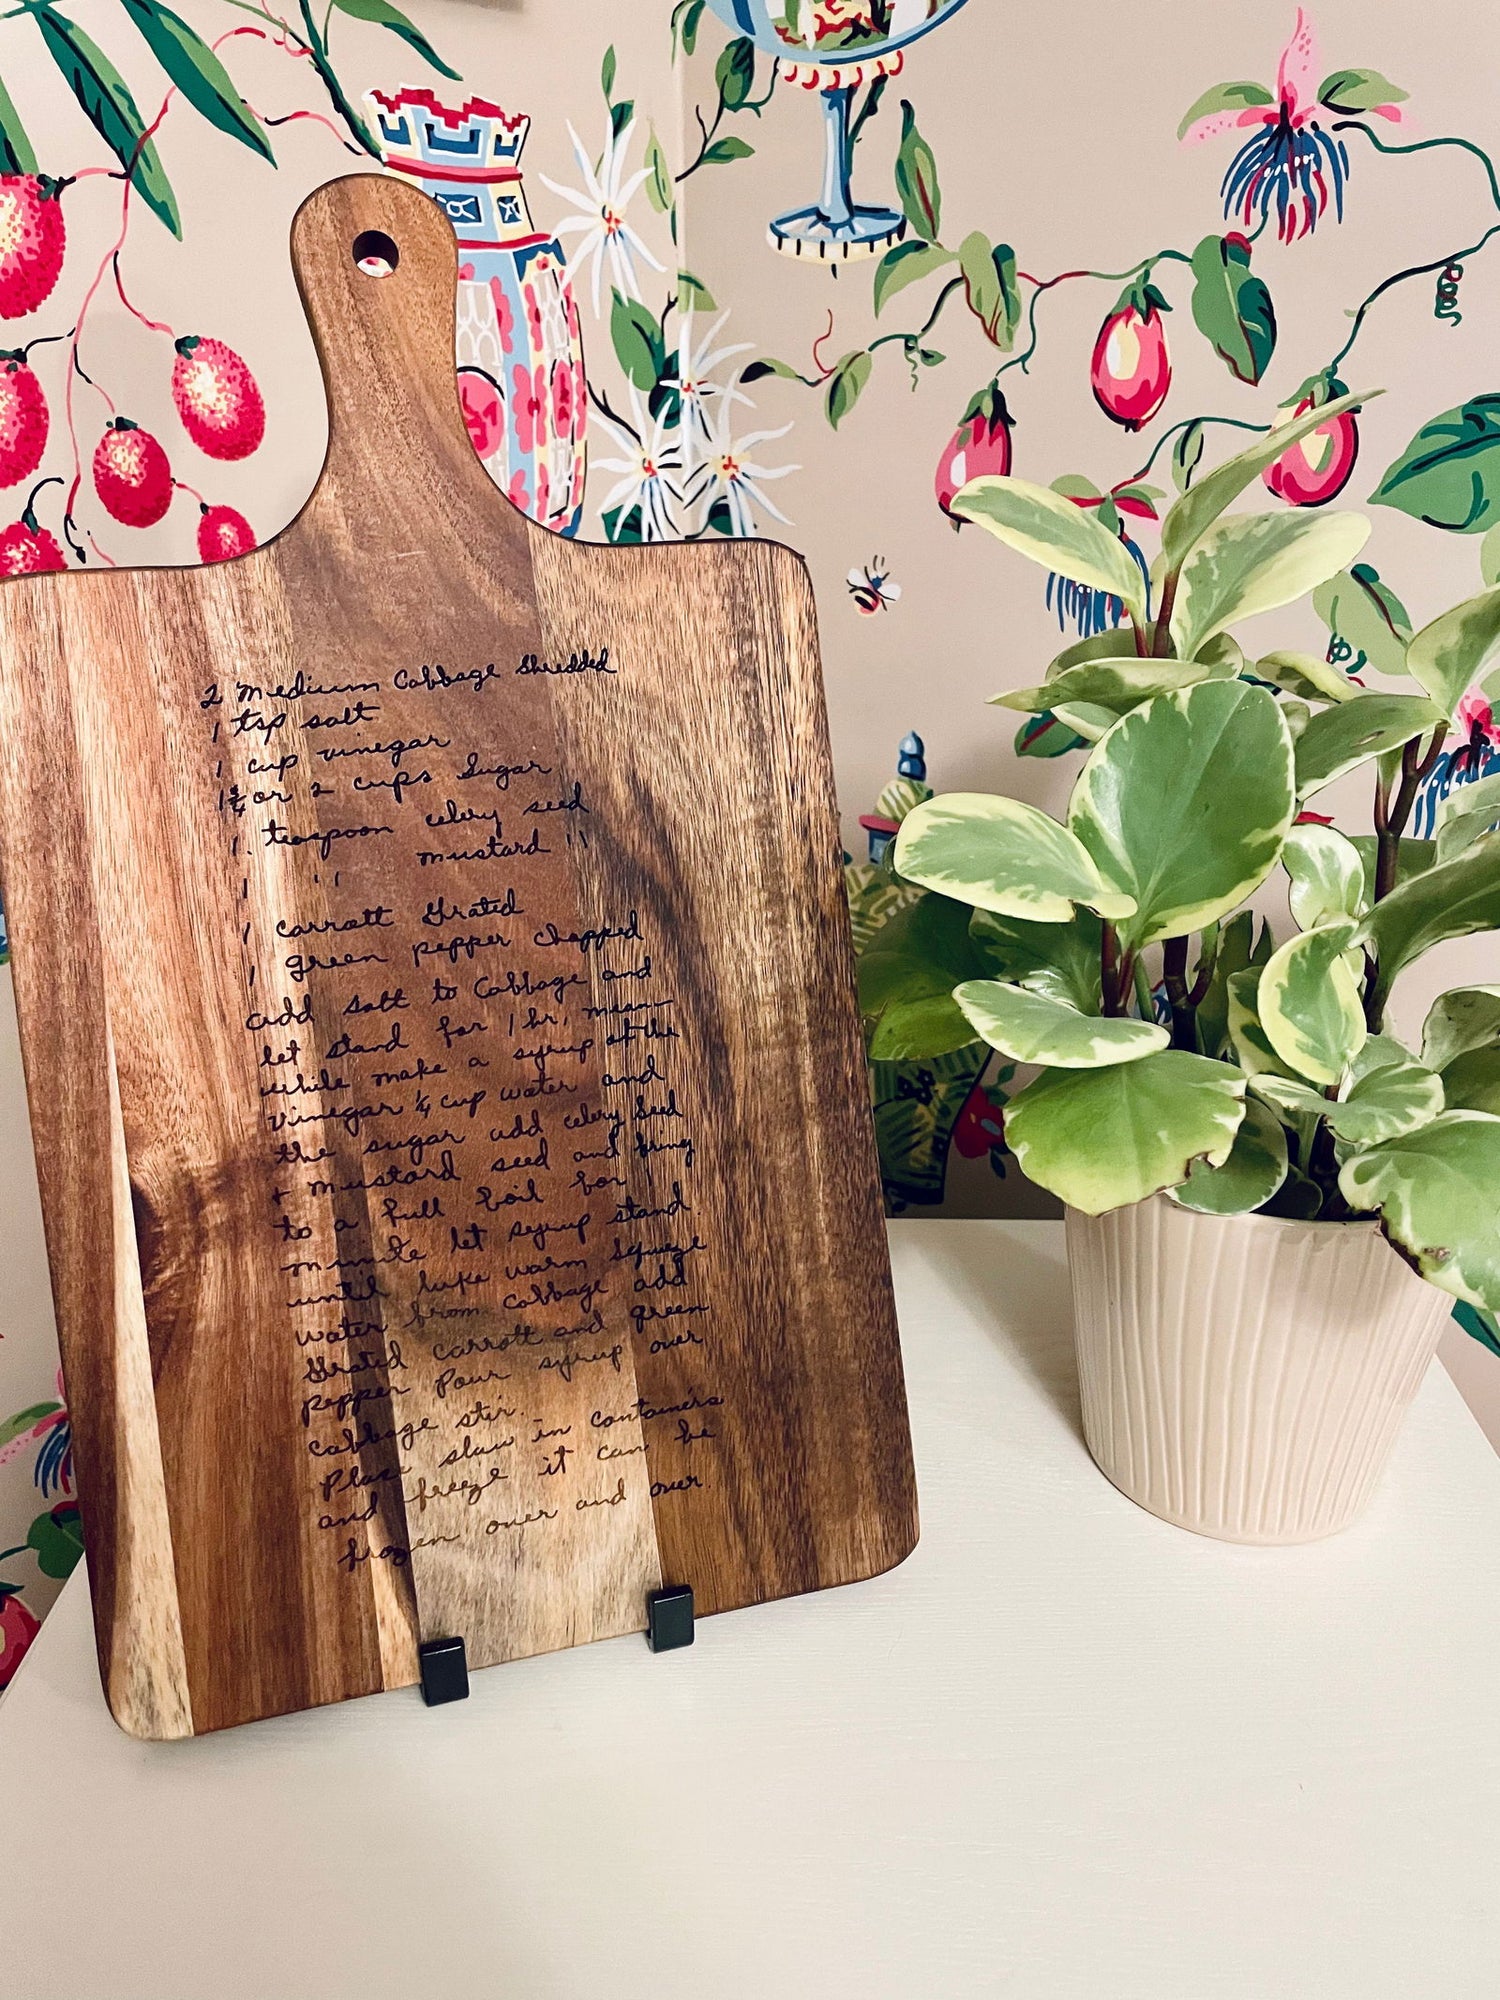 2 Medium Cabbage Shredded
1 tsp salt
1 cup vinegar
1 3/4 or 2 cups Sugar
1 teaspoon celery seed
1 '' mustard ''
1 carrott Grated
1 green pepper chopped
add salt to Cabbage and
let stand for 1 hr, mean-
while make a syrup of the
vinegar 1/4 cup water and
the sugar add celery Seed
+ Mustard seed and bring
to a full boil for 1
minute let syrup stand
until luke warm Squeeze
water from Cabbage add
Grated carrott and green
pepper Pour syrup over
cabbage stir.
Place slaw in containers
and freeze it can be
frozen over and over.